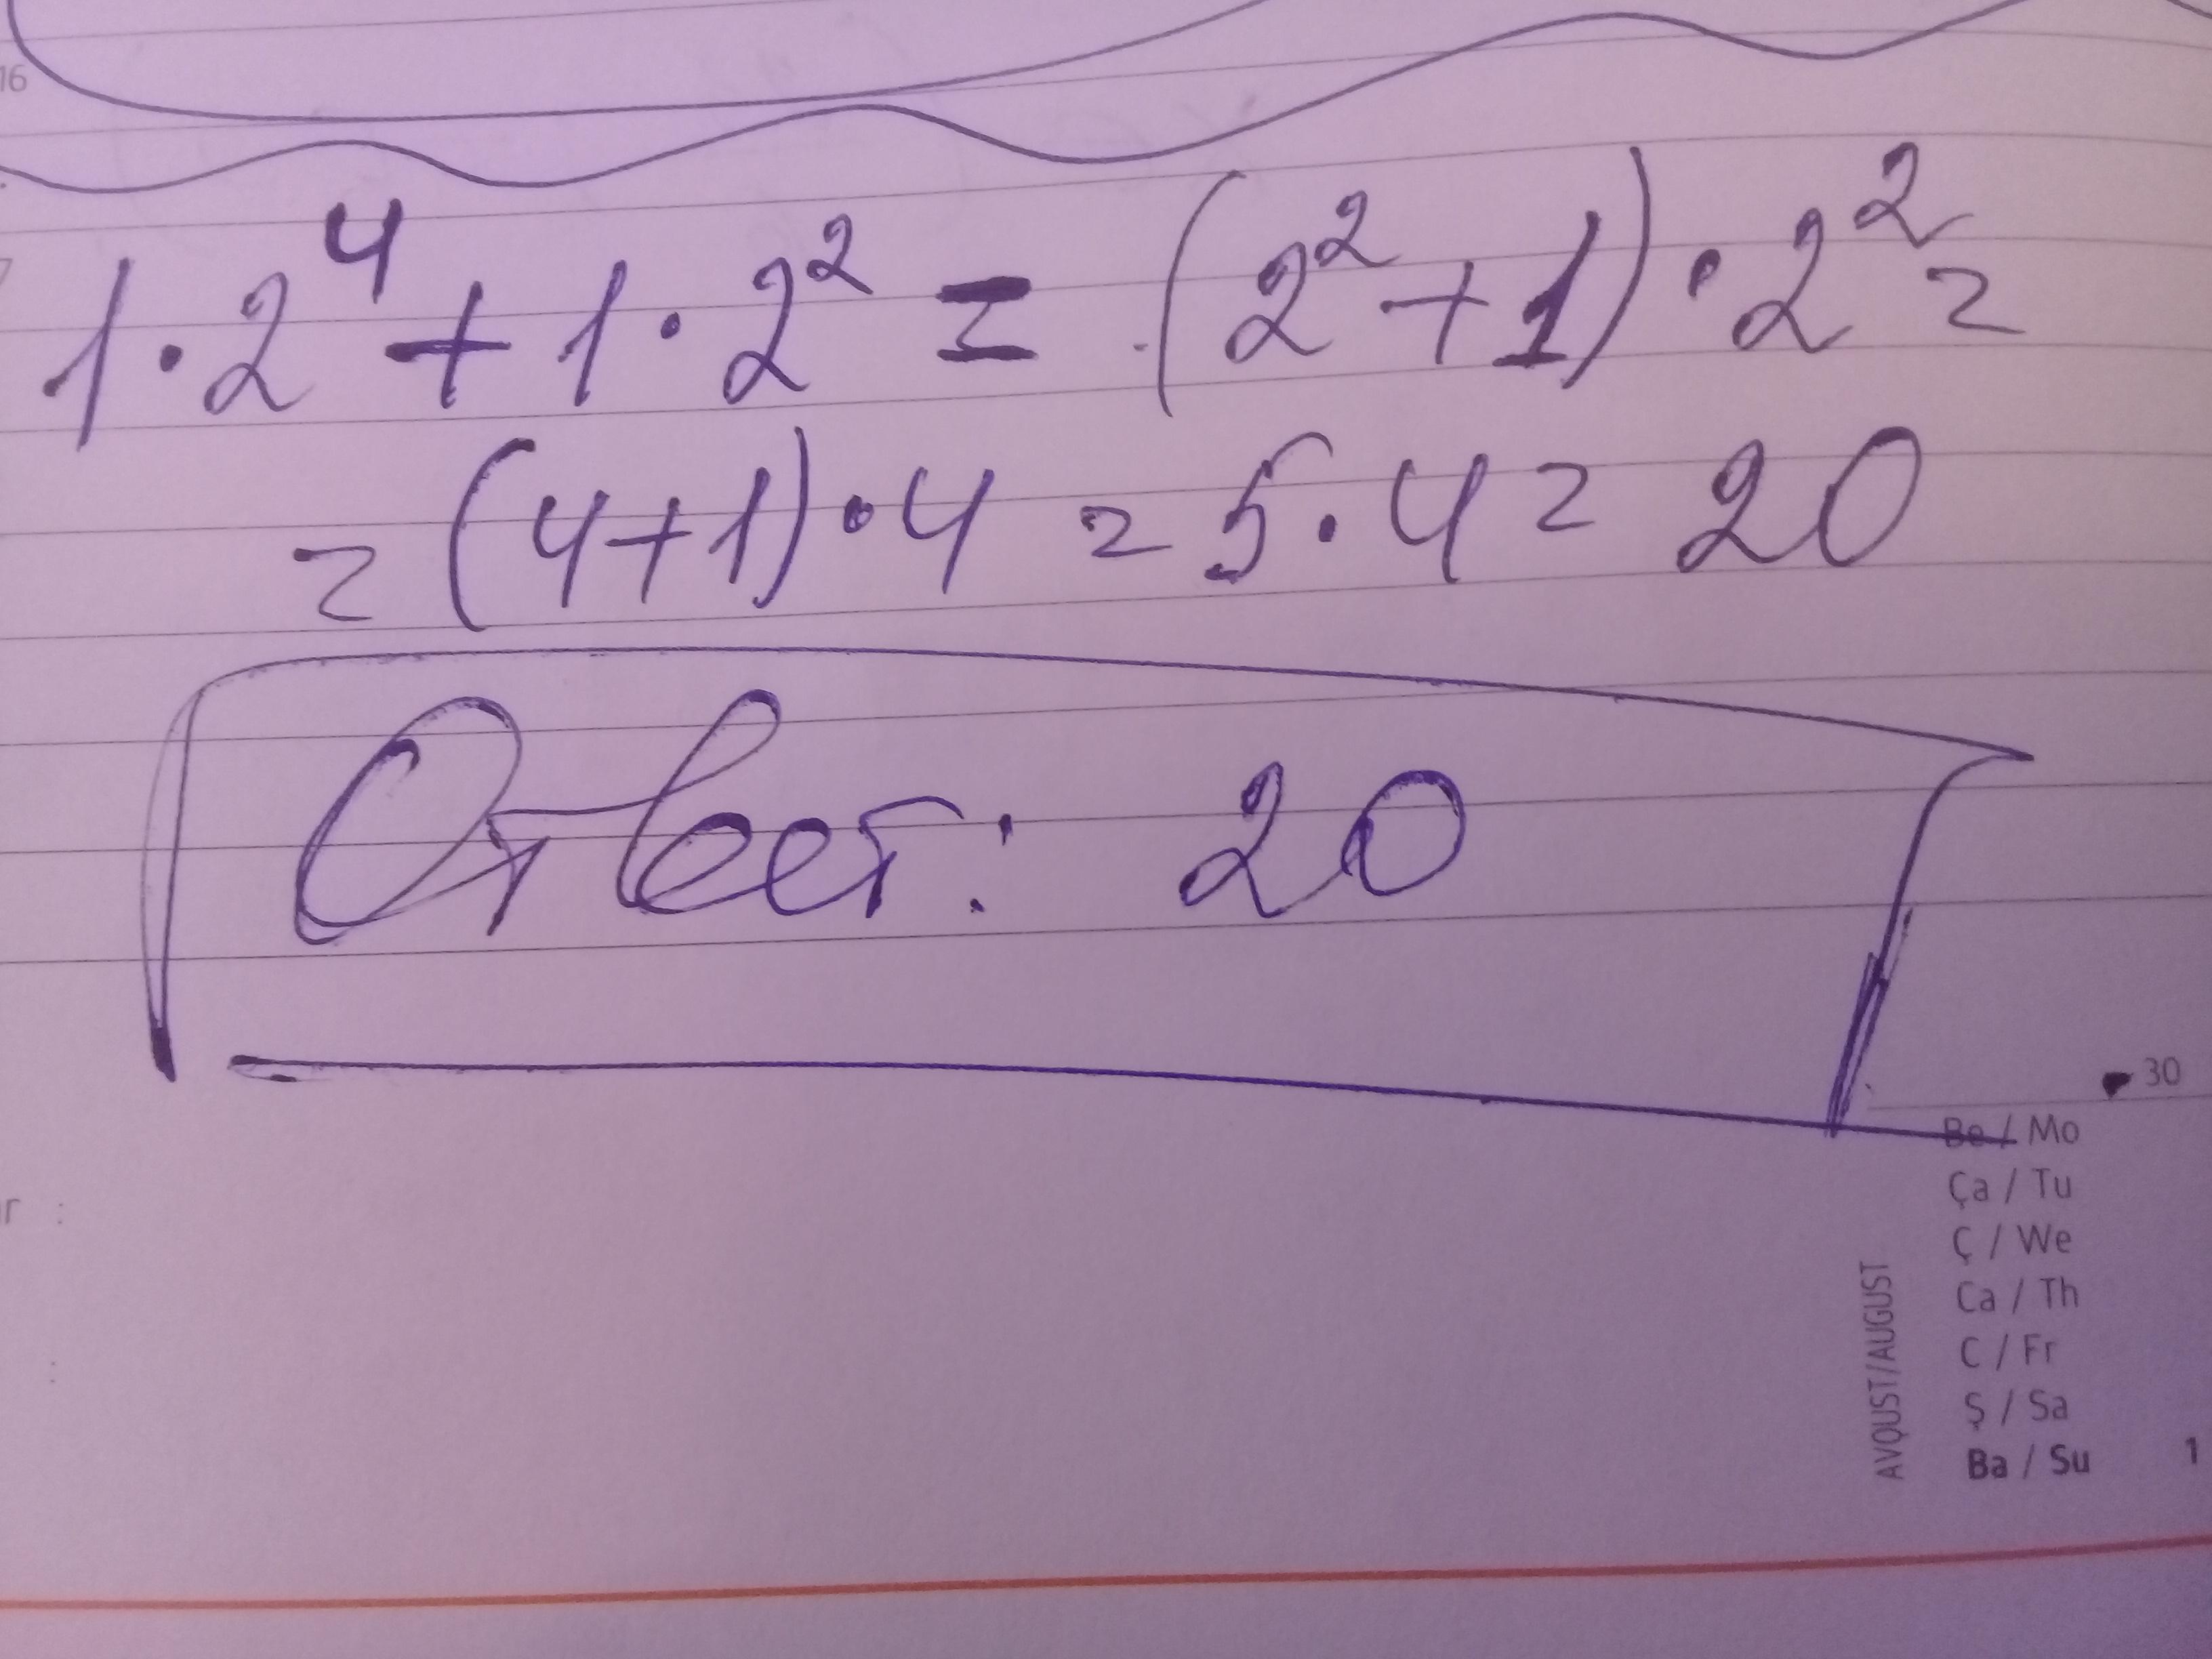 16
7
1·2⁴+1·2² = (2²+1)·2² =
= (4+1)·4 = 5·4 = 20
Ответ: 20
30
Be / Mo
Ça / Tu
Ç / We
Ca / Th
C / Fr
Ş / Sa
Ba / Su
1
AVQUST/AUGUST